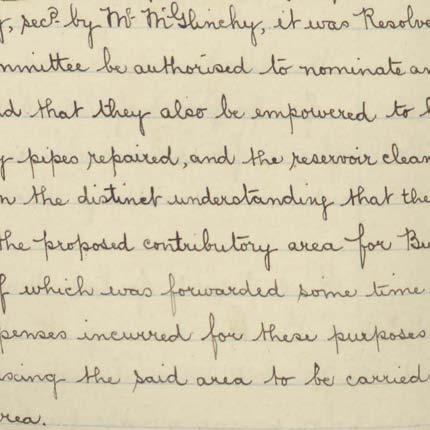 y, secd. by Mr. McGlinchy, it was Resolve
mmittee be authorised to nominate an
d that they also be empowered to h
y pipes repaired, and the reservoir clean
n the distinct understanding that the
the proposed contributory area for Bu
f which was forwarded some time
penses incurred for these purposes
ising the said area to be carried
rea.